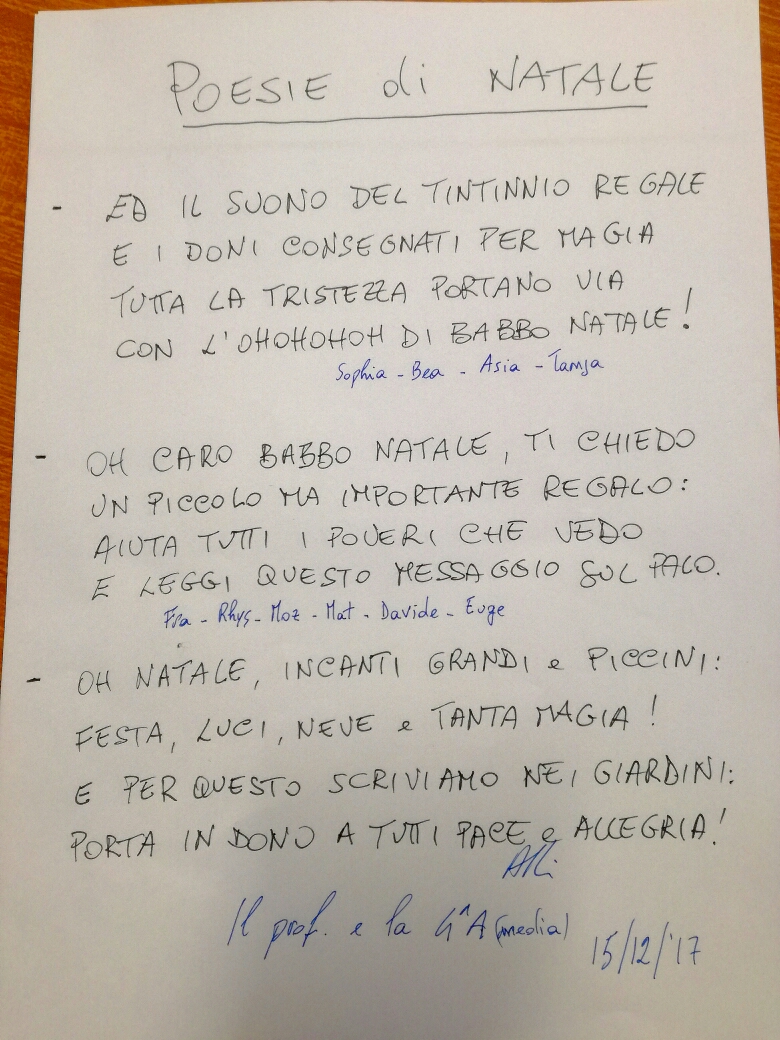 POESIE di NATALE
- ED IL SUONO DEL TINTINNIO REGALE
E I DONI CONSEGNATI PER MAGIA
TUTTA LA TRISTEZZA PORTANO VIA
CON L'OHOHOHOH DI BABBO NATALE!
Sophia - Bea - Asia - Tamja
- OH CARO BABBO NATALE, TI CHIEDO
UN PICCOLO MA IMPORTANTE REGALO:
AIUTA TUTTI I POVERI CHE VEDO
E LEGGI QUESTO MESSAGGIO SUL PALO.
Fra - Rhys - Moz - Mat - Davide - Euge
- OH NATALE, INCANTI GRANDI e PICCINI:
FESTA, LUCI, NEVE e TANTA MAGIA!
E PER QUESTO SCRIVIAMO NEI GIARDINI:
PORTA IN DONO A TUTTI PACE e ALLEGRIA!
Il prof. e la 4ªA (media)
15/12/'17